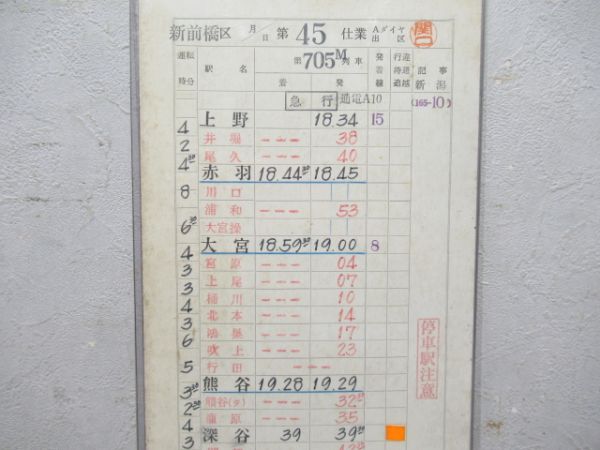 新前橋区 月日 第 45 仕業 Aダイヤ出区 関口
運転時分 駅名 第705M列車 着 発 発着線 行違待避追越 記事 新潟 (165-10)
急行 通電A10
上野 18.34 15
4 井堀 --- 38
2 尾久 --- 40
4 赤羽 18.44 18.45
8 川口
浦和 --- 53
6 大宮操
大宮 18.59 19.00 8
4 宮原 --- 04
3 上尾 --- 07
3 桶川 --- 10
4 北本 --- 14
3 鴻巣 --- 17
6 吹上 --- 23
5 行田 ---
熊谷 19.28 19.29
3 熊谷(タ) --- 32
2 籠原 --- 35
4 深谷 39 39
3
停車駅注意